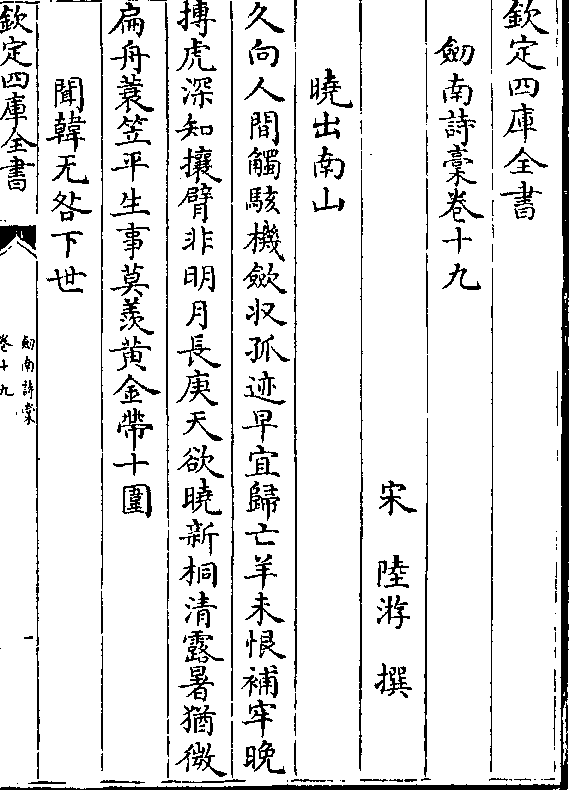 欽定四庫全書
劒南詩稾卷十九
宋 陸游 撰
曉出南山
久向人間觸駭機歛收孤迹早宜歸亡羊未恨補牢晚
搏虎深知攘臂非明月長庚天欲曉新桐清露暑猶微
扁舟蓑笠平生事莫羡黄金帶十圍
聞韓无咎下世
欽定四庫全書
劒南詩稾
卷十九
一